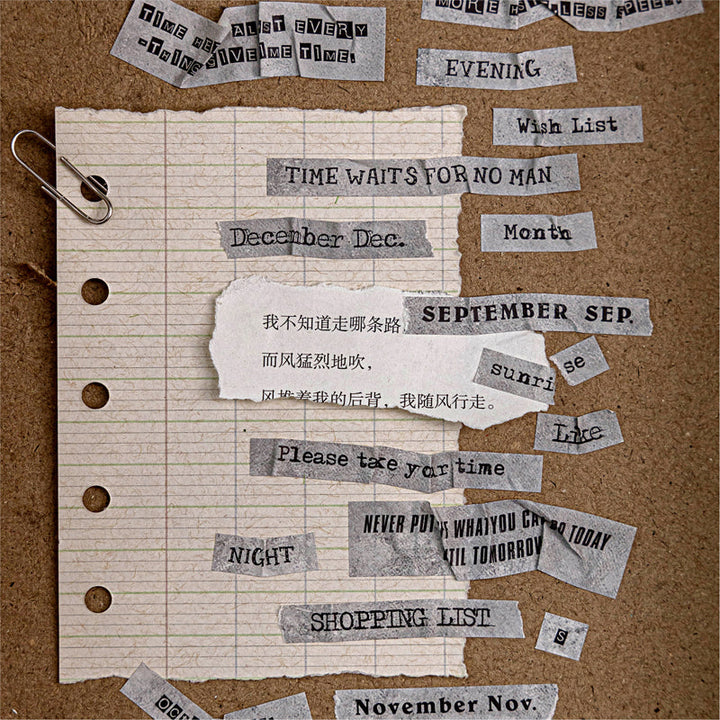 TIME HEALS ALMOST EVERY
-THING GIVE ME TIME.
MORE LESS SPEED
EVENING
Wish List
TIME WAITS FOR NO MAN
December Dec.
Month
我不知道走哪条路
SEPTEMBER SEP.
而风猛烈地吹，
sunri
se
风推着我的后背，我随风行走。
Like
Please take your time
NEVER PUT WHAT YOU CAN DO TODAY
TIL TOMORROW
NIGHT
SHOPPING LIST
S
November Nov.